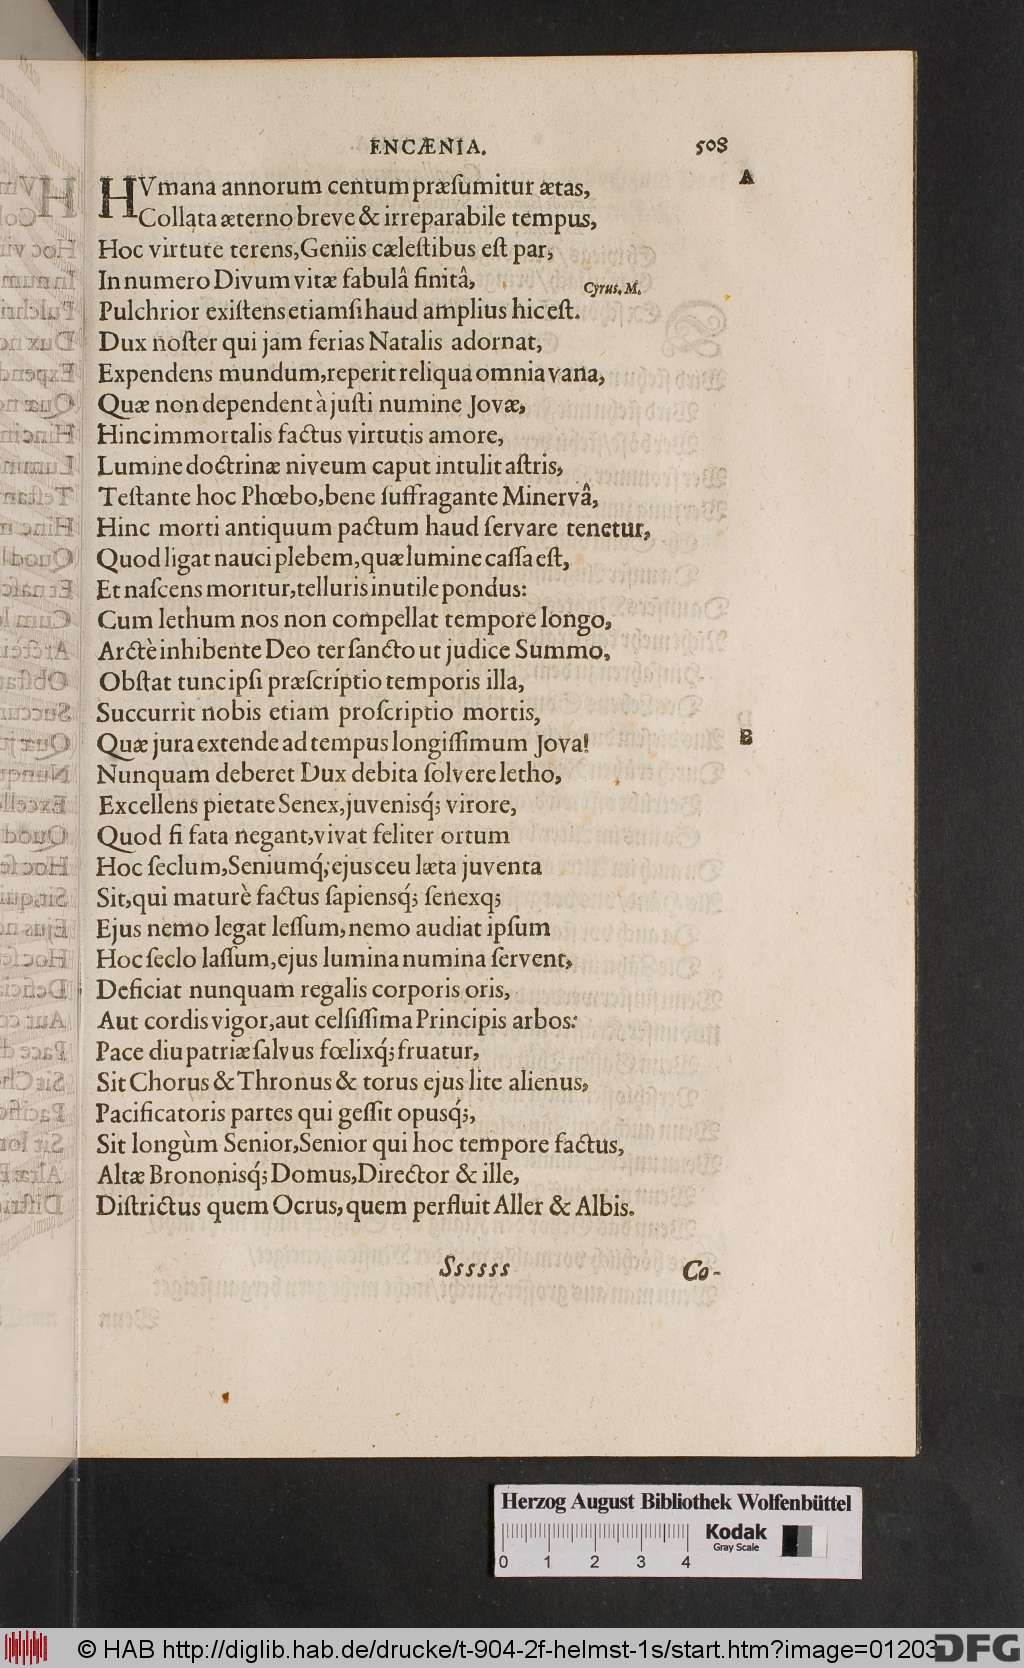 ENCÆNIA. 508
A
HVmana annorum centum præſumitur ætas,
Collata æterno breve & irreparabile tempus,
Hoc virtute terens, Geniis cæleſtibus eſt par,
In numero Divum vitæ fabulâ finitâ,
Cyrus. M.
Pulchrior exiſtens etiamſi haud amplius hic eſt.
Dux noſter qui jam ferias Natalis adornat,
Expendens mundum, reperit reliqua omnia vana,
Quæ non dependent à juſti numine Jovæ,
Hinc immortalis factus virtutis amore,
Lumine doctrinæ niveum caput intulit aſtris,
Teſtante hoc Phœbo, bene ſuffragante Minervâ,
Hinc morti antiquum pactum haud ſervare tenetur,
Quod ligat nauci plebem, quæ lumine caſſa eſt,
Et naſcens moritur, telluris inutile pondus:
Cum lethum nos non compellat tempore longo,
Arctè inhibente Deo ter ſancto ut judice Summo,
Obſtat tunc ipſi præſcriptio temporis illa,
Succurrit nobis etiam proſcriptio mortis,
Quæ jura extende ad tempus longiſſimum Jova!
B
Nunquam deberet Dux debita ſolvere letho,
Excellens pietate Senex, juvenisq́; virore,
Quod ſi fata negant, vivat feliter ortum
Hoc ſeclum, Seniumq́; ejus ceu læta juventa
Sit, qui maturè factus ſapiensq́; ſenexq;
Ejus nemo legat leſſum, nemo audiat ipſum
Hoc ſeclo laſſum, ejus lumina numina ſervent,
Deficiat nunquam regalis corporis oris,
Aut cordis vigor, aut celſiſſima Principis arbos:
Pace diu patriæ ſalvus fœlixq́; fruatur,
Sit Chorus & Thronus & torus ejus lite alienus,
Pacificatoris partes qui geſſit opusq́;,
Sit longùm Senior, Senior qui hoc tempore factus,
Altæ Brononisq́; Domus, Director & ille,
Diſtrictus quem Ocrus, quem perfluit Aller & Albis.
Ssssss Co-
Herzog August Bibliothek Wolfenbüttel
Kodak
Gray Scale
0 1 2 3 4
© HAB http://diglib.hab.de/drucke/t-904-2f-helmst-1s/start.htm?image=01203
DFG